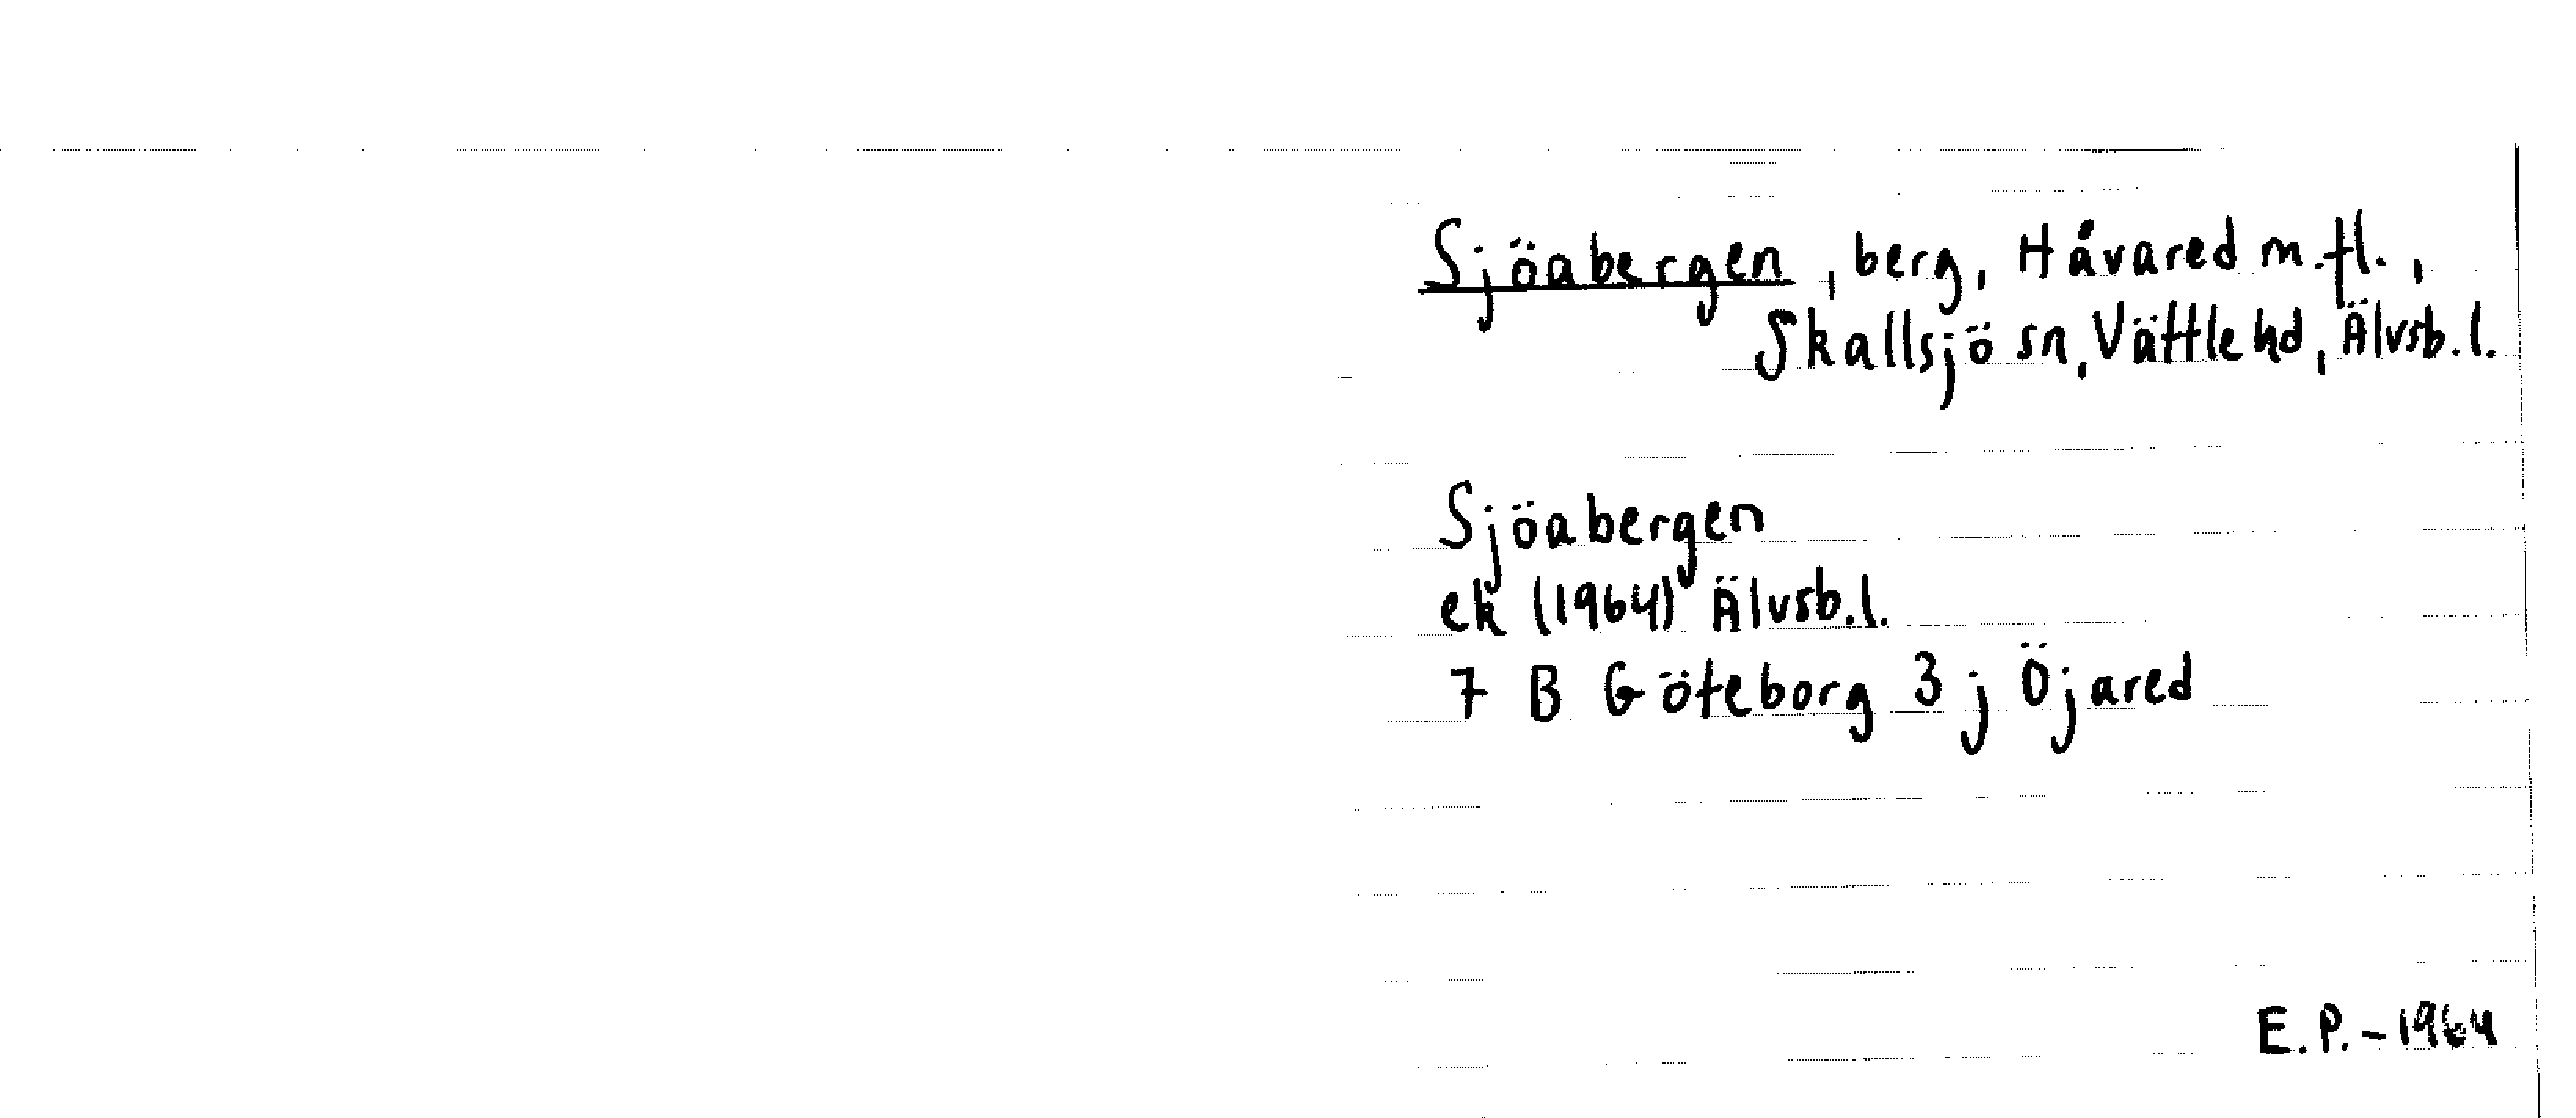 Sjöabergen, berg, Håvared m.fl.,
Skallsjö sn, Vättle hd, Älvsb.l.
Sjöabergen
ek (1964) Älvsb.l.
7 B Göteborg 3 j Öjared
E.P.-1964